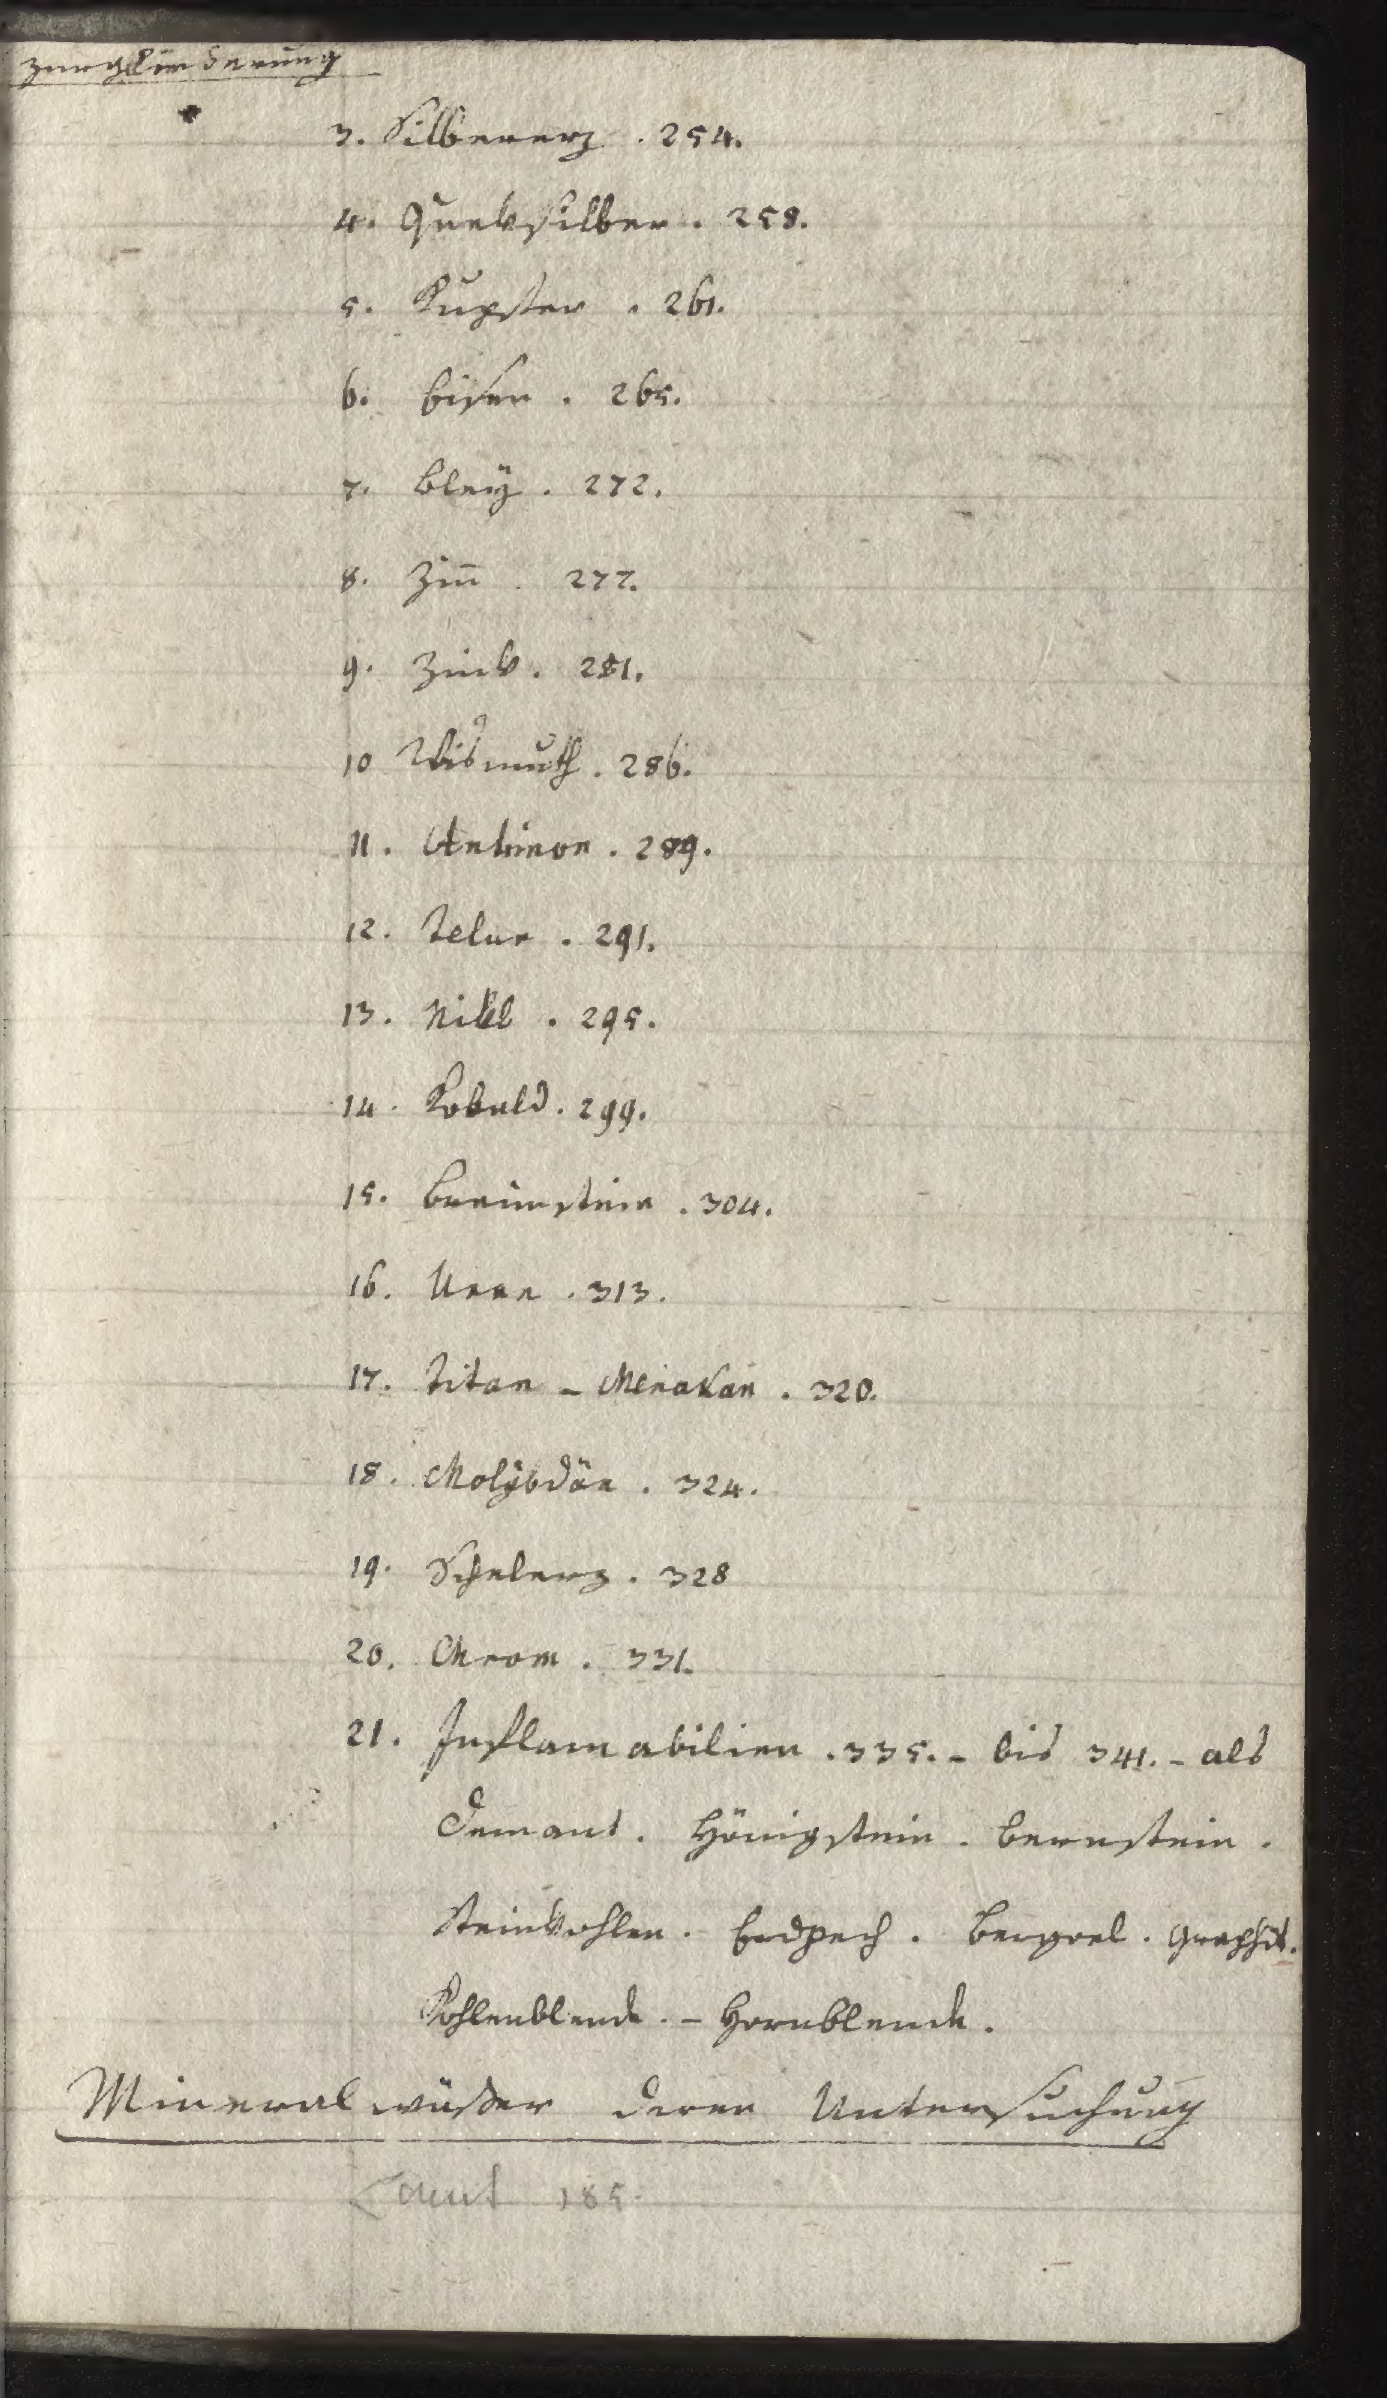 Zergliederung
3. Silbererz . 254.
4. Queksilber . 258.
5. Kupfter . 261.
6. Eisen . 265.
7. Bleÿ . 272.
8. Zin̄ . 277.
9. Zink . 281.
10 Wismuth . 286.
11. Antimon . 289.
12. Telur . 291.
13. Nikl . 295.
14. Kobald . 299.
15. Braunstein . 304.
16. Uran . 313.
17. Titan – Menakan . 320.
18. Molÿbdän . 324.
19. Schelerz . 328
20. Chrom . 331.
21. Inflamabilien . 335. – bis 341. – als
Demant . Hönigstein . Bernstein .
Steinkohlen . Erdpech . Bergoel . Graphit.
Kohlenblende . – Hornblende .
Mineralwäßer deren Untersuchung
185.